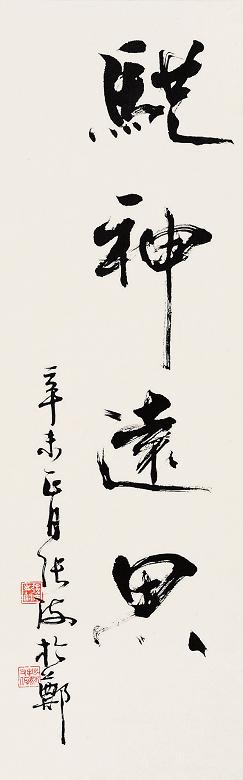 馳神遠思
辛未正月張海於鄭